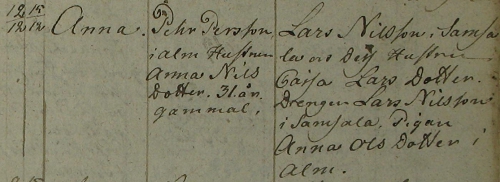 12/12 15/12 Anna. Pehr Persson, Lars Nilsson i Samsa
i Alm Hustrun la och Dess Hustru
Anna Nils Cajsa Lars Dotter.
Dotter. 31 år Drengen Lars Nilsson
gammal. i Samsala, Pigan
Anna Ols Dotter i
Alm.